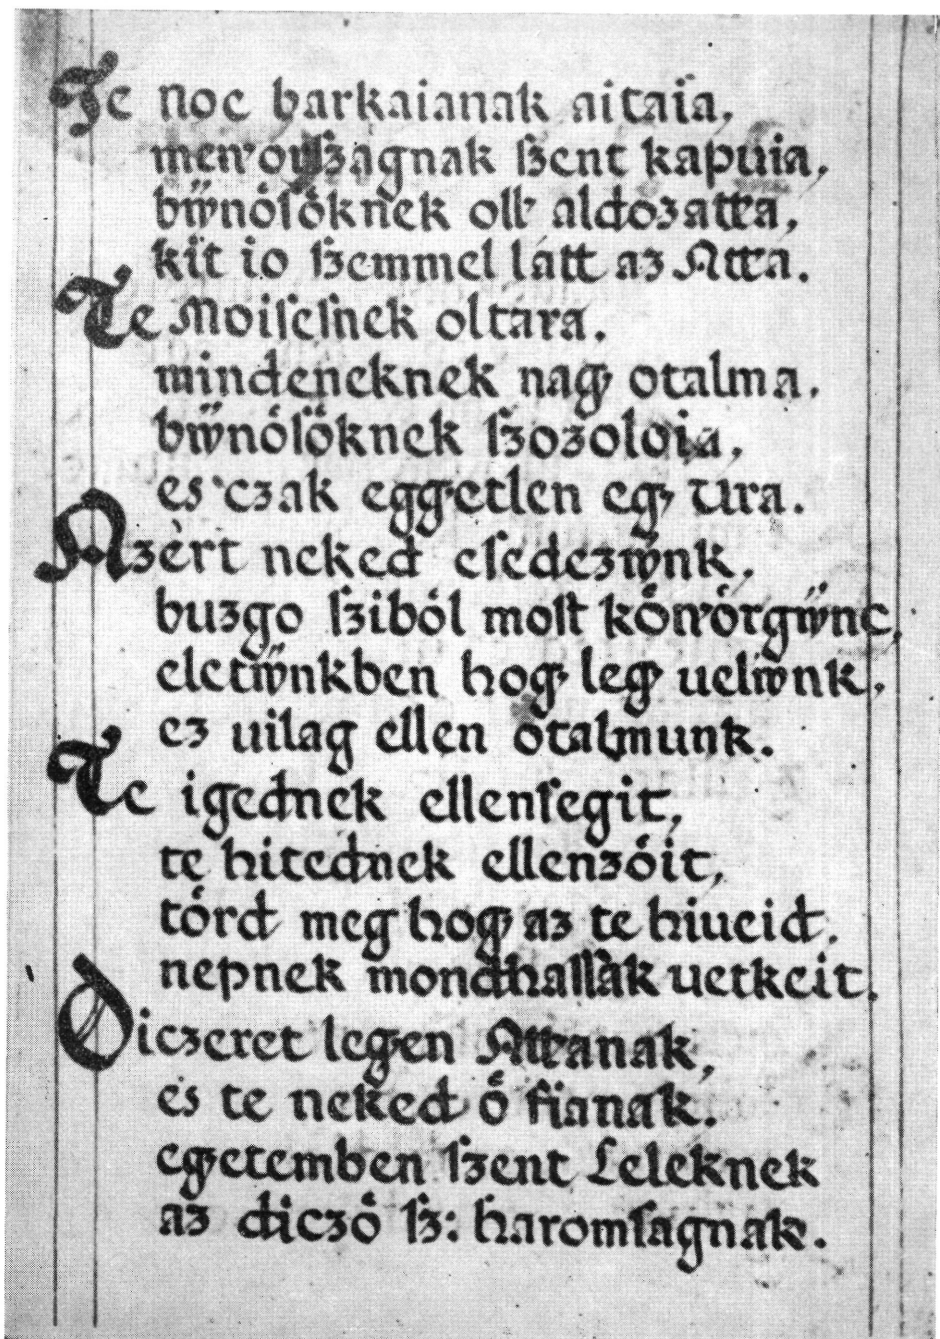 Te noe barkaianak aitaia,
menńorſzagnak ſzent kapuia,
bẅnőſőknek oll' aldozatta,
kit io ſzemmel látt az Atta.
Te Moiſeſnek oltara,
mindeneknek nag' otalma,
bẅnőſőknek ſzozoloia,
es czak egg'etlen eg' Ura.
Azèrt neked eſedezẅnk,
buzgo ſziből moſt kőnńőrgẅnc,
eletẅnkben hog' leg' uelẅnk,
ez uilag ellen otalmunk.
Te igednek ellenſegit,
te hitednek ellenzőit,
tőrd meg hog' az te hiueid,
nepnek mondhaſſak uetkeit.
Diczeret leg'en Attanak,
es te neked ő fianak.
eg'etemben ſzent Leleknek
az diczõ ſz: haromſagnak.